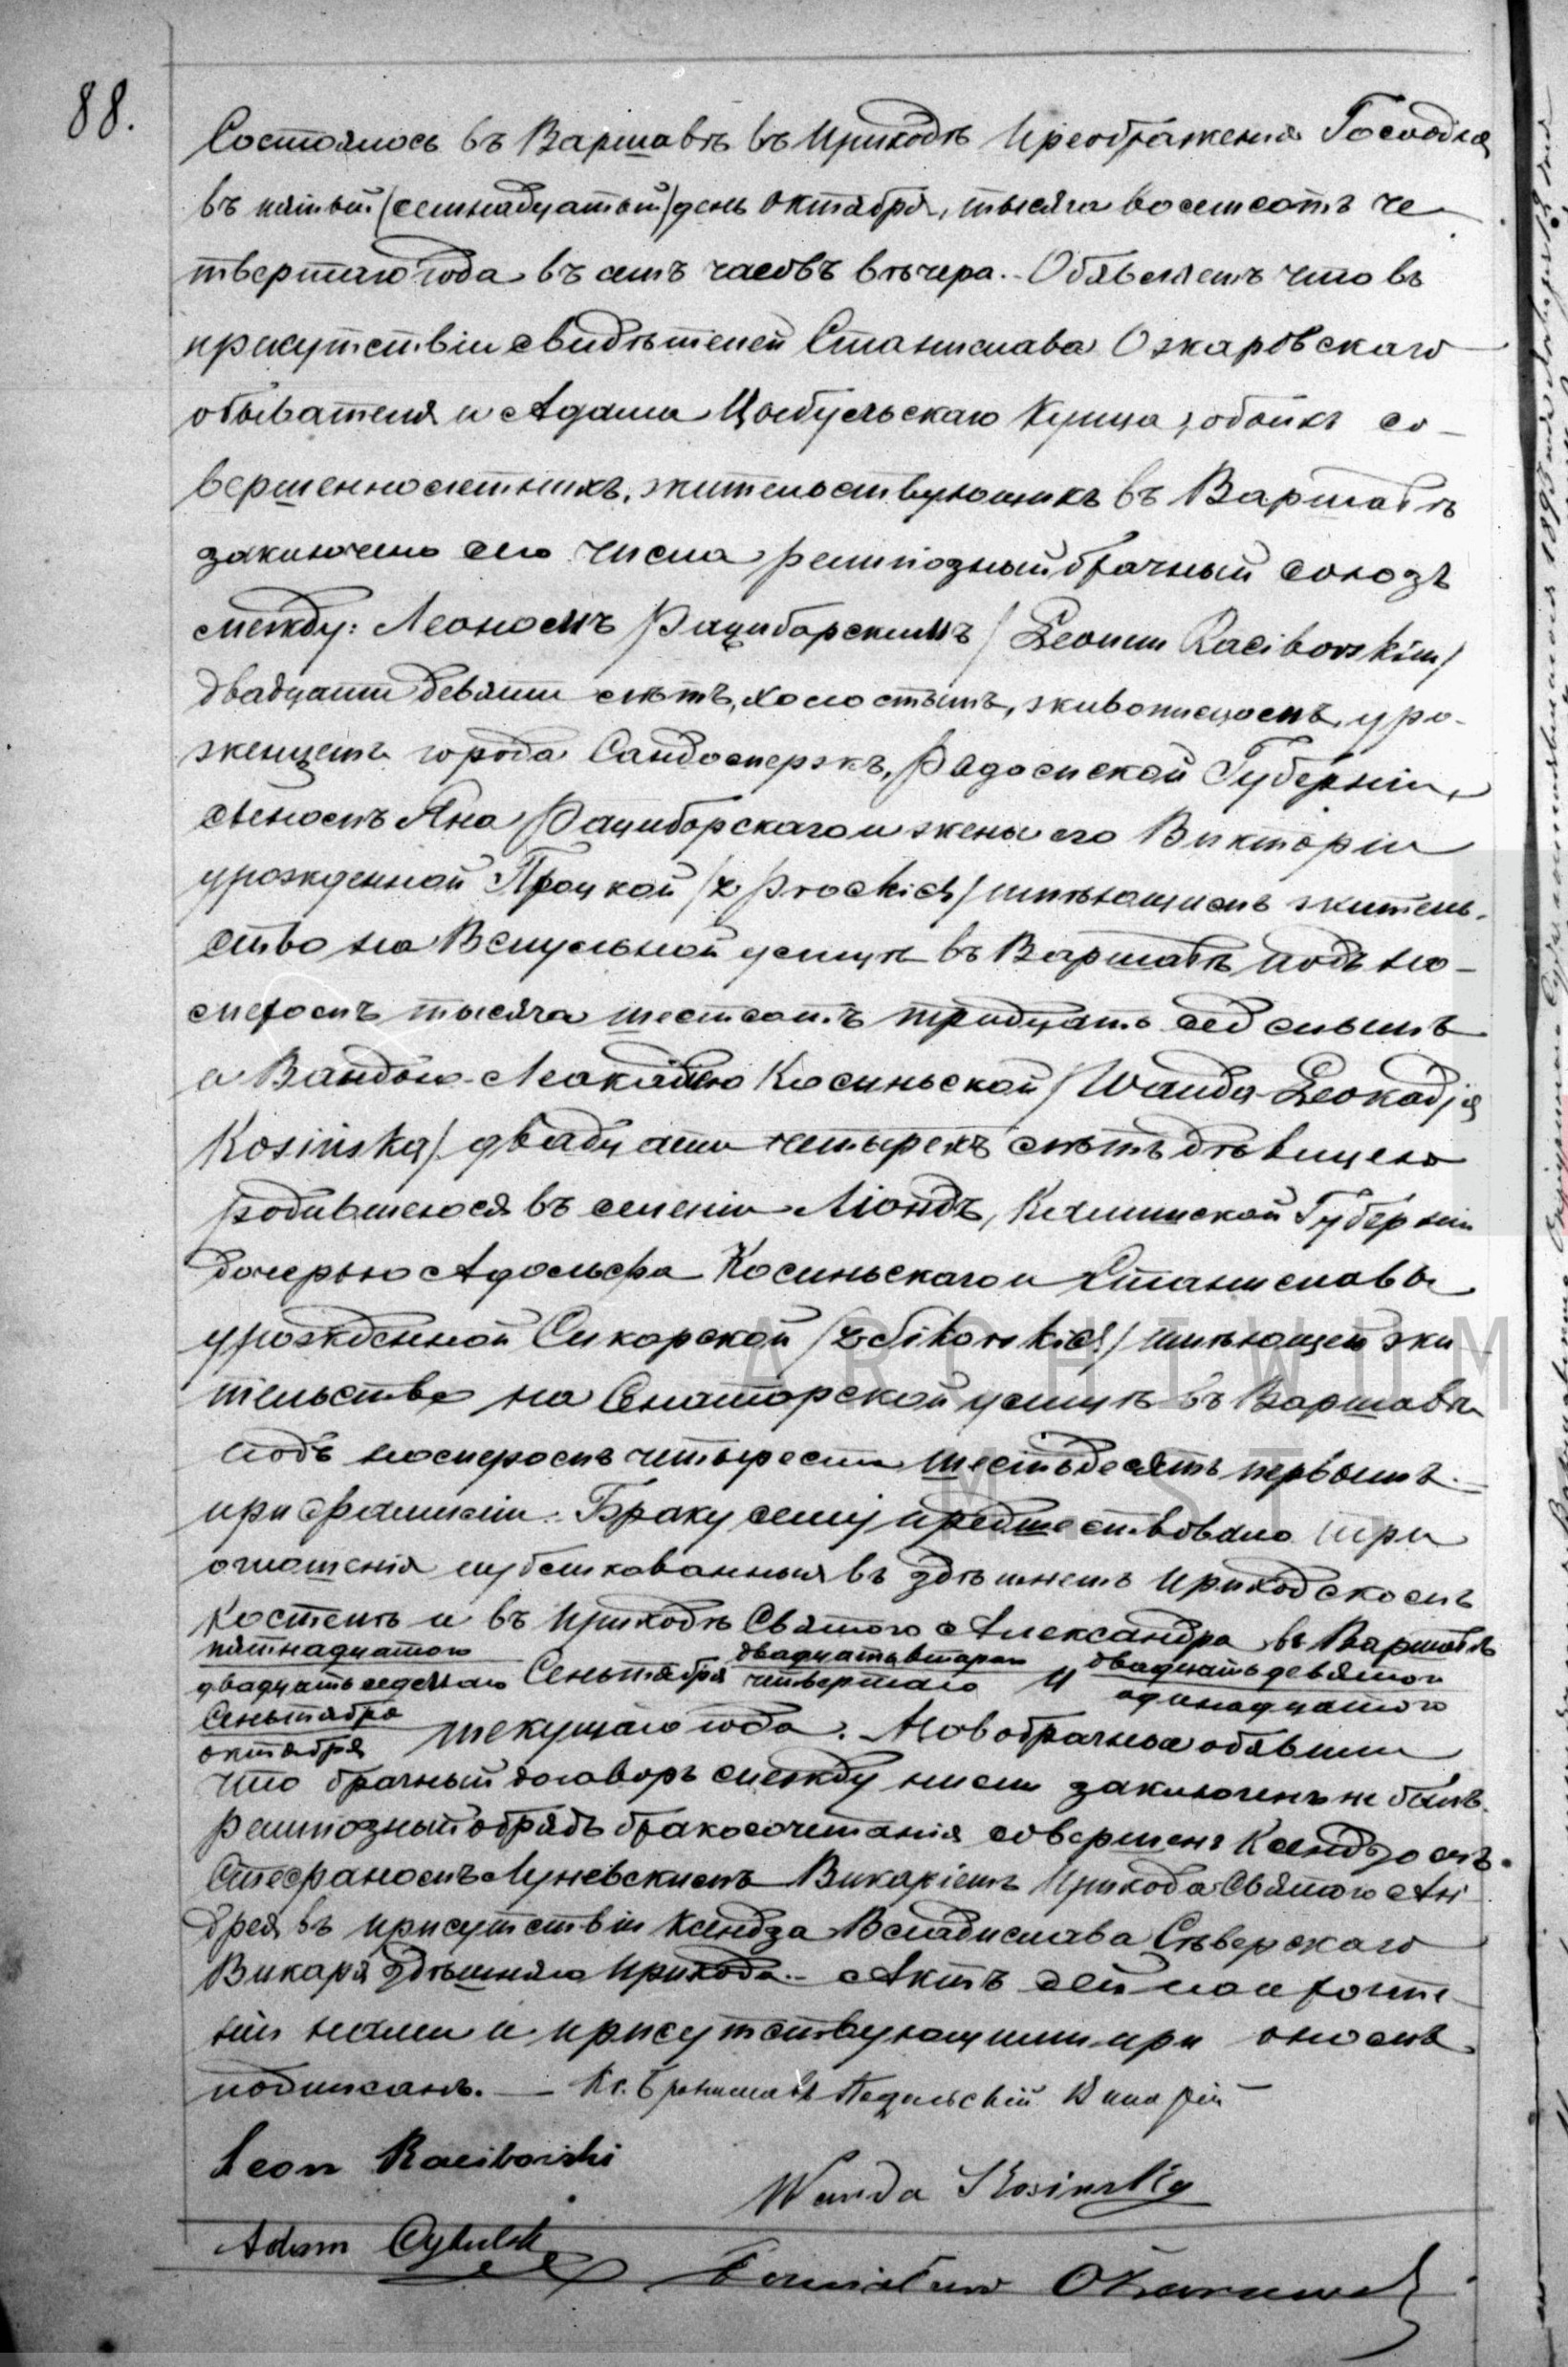 88.
Состоялось въ Варшавѣ въ Приходѣ Преображенія Господня
въ пятый /семнадцатый/ день Октября, тысяча восемсотъ че-
твертаго года въ семъ часовъ вѣчера. Обявляемъ что въ
присутствіи свидѣтелей Станислава Ожаровскаго
обывателя и Адама Цыбульскаго Купца, обоихъ со-
вершеннолетнихъ, жительствующихъ въ Варшавѣ
заключено сего числа религіозный брачный союзъ
между: Леономъ Рациборскимъ /Leonem Raciborskim/
двадцати девяти лѣтъ, холостымъ, живописцомъ, уро-
женцемъ города Сандомержъ, Радомской Губерніи,
сыномъ Яна Рациборскаго и жены его Викторіи
урожденной Процкой /z Prockich/ имѣющимъ житель-
ство на Вспульной улицѣ въ Варшавѣ подъ но-
меромъ тысяча шестсотъ тридцать седмымъ
и Вандою-Леокадіею Косиньской /Wandą-Leokadją
Kosińską/ двадцати четырехъ лѣтъ дѣвицею
родившеюся въ имѣніиЛіондъ, Калишской Губерніи
дочерью Адольфа Косиньскаго и Станиславы
урожденной Сикорской /z Sikorskich/ имѣющей жи
тельство на Сенаторской улицѣ въ Варшавѣ
подъ номеромъ четыреста шестьдесятъ первымъ
при фамиліи. Браку сему предшествовало три
оглашенія публикованныя въ здѣшнемъ Приходскомъ
Костелѣ и въ Приходѣ Святого Александра въ Варшавѣ
пятнадцатого двадцать втораго двадцать девятого
двадцать седмаго Сентября четвертаго и одинадцатого
Сентября
октября текущаго года. Новобрачные обявили
что брачный договоръ между ними заключенъ не былъ.
Религіозный обрядъ бракосочетанія совершенъ Ксендзомъ
Стефаномъ Луневскимъ Викаріемъ Прихода Святого Ан
дрея въ присутствіи Ксендза Владислава Сѣверскаго
Викарія здѣшняго Прихода. Актъ сей по прочте-
ніи нами и присутствующими при ономъ
подписанъ. — Кс. Брониславъ Подольскій Викарій
Leon Raciborski
Wanda Kosińska
Adam Cybulski
Stanisław Ożarowski
ARCHIWUM
M. ST.